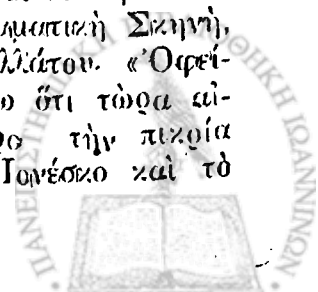 ματικὴ Σκηνή,
λλάτου. «Ὀφεί-
ο ὅτι τώρα αἰ-
τὴν πικρία
Ἰονέσκο καὶ τὸ
ΠΑΝΕΠΙΣΤΗΜΙΑΚΗ ΒΙΒΛΙΟΘΗΚΗ ΙΩΑΝΝΙΝΩΝ